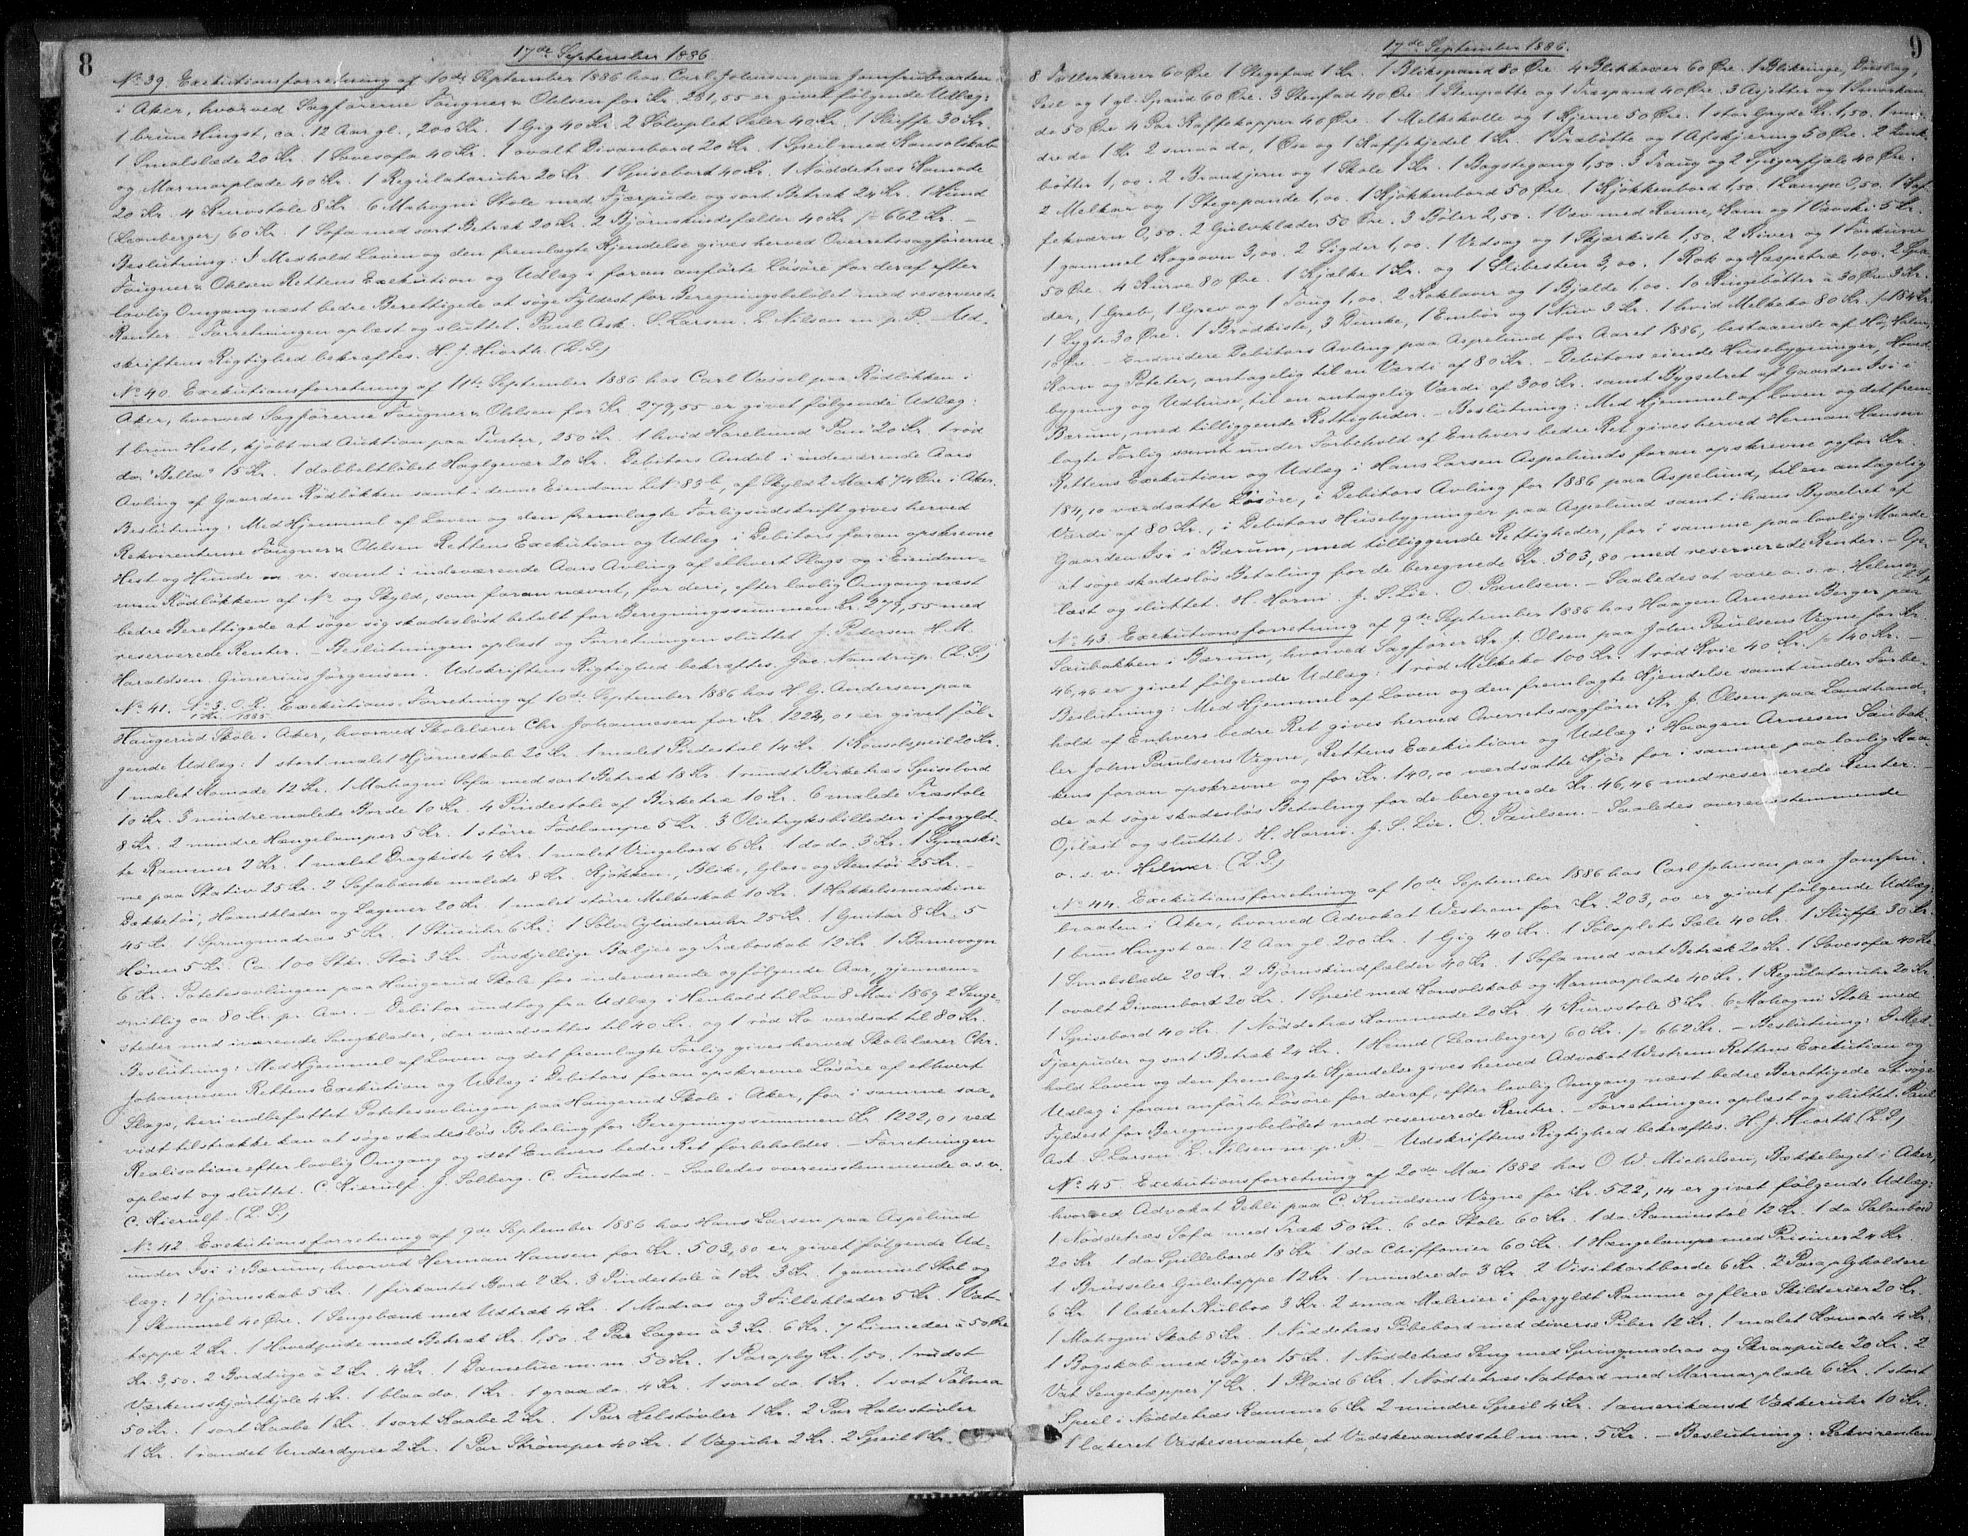 8
17de September 1886
No 39. Exekutionsforretning af 10de September 1886 hos Carl Johnsen paa Jomfrubraaten
i Aker, hvorved Sagførerne Fougner & Ohlsen for Kr. 281,55 er givet følgende Udlæg:
1 brun Hingst, ca. 12 Aar gl., 200 Kr. 1 Gig 40 Kr. 2 Sølvplet Seler 40 Kr. 1 Sluffe 30 Kr.
1 Smalslæde 20 Kr. 1 Sovesofa 40 Kr. 1 ovalt Divanbord 20 Kr. 1 Speil med Konsolskab
og Marmorplade 40 Kr. 1 Regulatoruhr 20 Kr. 1 Spisebord 40 Kr. 1 Nøddetræs Komode
20 Kr. 4 Kurvstole 8 Kr. 6 Mahogni Stole med Fjærpude og sort Betræk 24 Kr. 1 Hund
(Leonberger) 60 Kr. 1 Sofa med sort Betræk 20 Kr. 2 Bjørneskindsfælder 40 Kr. /= 662 Kr. –
Beslutning: I Medhold Loven og den fremlagte Kjendelse gives herved Overretssagførerne
Fougner & Ohlsen Rettens Exekution og Udlæg i foran anførte Løsøre for deraf efter
lovlig Omgang næst bedre Berettigede at søge Fyldest for Beregningsbeløbet med reserverede
Renter. – Forretningen oplæst og sluttet. Paul Ask. S. Larsen. L. Nilsen m. p. P. – Ud-
skriftens Rigtighed bekræftes. H. J. Hiorth. (L. S.)
No 40. Exekutionsforretning af 11te September 1886 hos Carl Vassel paa Rødløkken i
Aker, hvorved Sagførerne Fougner & Ohlsen for Kr. 279,55 er givet følgende Udlæg:
1 brun Hest, kjøbt ved Auktion paa Tuster, 250 Kr. 1 hvid Harehund "Pan" 20 Kr. 1 rød
do. "Bella" 15 Kr. 1 dobbeltløbet Haglgevær 20 Kr. Debitors Andel i indeværende Aars
Avling af Gaarden Rødløkken samt i denne Eiendom LNo 83b, af Skyld 2 Mark 74 Øre i Aker.
Beslutning: Med Hjemmel af Loven og den fremlagte Forligsudskrift gives herved
Rekvirenterne Fougner & Ohlsen Rettens Exekution og Udlæg i Debitors foran opskrevne
Hest og Hunde m. v. samt i indeværende Aars Avling af ethvert Slags og i Eiendom-
men Rødløkken af No og Skyld, som foran nævnt, for deri, efter lovlig Omgang næst
bedre Berettigede at søge sig skadesløst betalt for Beregningssummen Kr. 279,55 med
reserverede Renter. – Beslutningen oplæst og Forretningen sluttet. J. Pedersen. H. M.
Haraldsen. Givnerius Jørgensen. Udskriftens Rigtighed bekræftes. Jac. Nandrup. (L. S.)
No 41. No 3. O. R. Exekutions-Forretning af 10de September 1886 hos H. G. Andersen paa
1 Kr. 1885
Haugerud Skole i Aker, hvorved Skolelærer Chr. Johannesen for Kr. 1222,01 er givet føl-
gende Udlæg: 1 stort malet Hjørneskab 20 Kr. 1 malet Piedestal 14 Kr. 1 Konsolspeil 20 Kr.
1 malet Komode 12 Kr. 1 Mahogni Sofa med sort Betræk 18 Kr. 1 rundt Birketræs Spisebord
10 Kr. 3 mindre malede Borde 10 Kr. 4 Pindestole af Birketræ 10 Kr. 6 malede Træstole
8 Kr. 2 mindre Hængelamper 5 Kr. 1 større Fodlampe 5 Kr. 3 Olietryksbilleder i forgyld-
te Rammer 2 Kr. 1 malet Dragkiste 4 Kr. 1 malet Vingebord 6 Kr. 1 do do. 3 Kr. 1 Symaski-
ne paa Stativ 25 Kr. 2 Sofabænke malede 8 Kr. Kjøkken-, Blik-, Glas- og Stentøi 25 Kr. –
Dækketøi, Haandklæder og Lagener 20 Kr. 1 malet større Melkeskab 10 Kr. 1 Hakkelsmaskine
45 Kr. 1 Springmadras 5 Kr. 1 Stueuhr 6 Kr. 1 Sølv Cylinderuhr 25 Kr. 1 Guitar 8 Kr. 5
Høner 5 Kr. Ca. 100 Stkr. Stør 3 Kr. Forskjellige Baljer og Træboskab 12 Kr. 1 Barnevogn
6 Kr. Potetesavlingen paa Haugerud Skole for indeværende og følgende Aar, gjennem-
snitlig ca. 80 Kr. pr. Aar. – Debitor undtog fra Udlæg i Henhold til Lov 8 Mai 1869 2 Senge-
steder med iværende Sengklæder, der værdsattes til 40 Kr. og 1 rød Ko værdsat til 80 Kr.
Beslutning: Med Hjemmel af Loven og det fremlagte Forlig gives herved Skolelærer Chr.
Johannesen Rettens Exekution og Udlæg i Debitors foran opskrevne Løsøre af ethvert
Slags, heri indbefattet Potetesavlingen paa Haugerud Skole i Aker, for i samme saa-
vidt tilstrække kan at søge skadesløs Betaling for Beregningssummen Kr. 1222,01 ved
Realisation efter lovlig Omgang og idet Enhvers bedre Ret forbeholdes. – Forretningen
oplæst og sluttet. C. Kierulf. J. Solberg. C. Finstad. – Saaledes overensstemmende o. s. v.
C. Kierulf. (L. S.)
No 42 Exekutionsforretning af 9de September 1886 hos Hans Larsen paa Aspelund
under Isi i Bærum, hvorved Herman Hansen for Kr. 503,80 er givet følgende Ud-
læg: 1 Hjørneskab 5 Kr. 1 firkantet Bord 2 Kr. 3 Pindestole à 1 Kr. 3 Kr. 1 gammel Stol og
1 Skammel 40 Øre. 1 Sengebænk med Udtræk 4 Kr. 1 Madras og 3 Filleklæder 5 Kr. 1 Vat-
tæppe 2 Kr. 1 Hovedpude med Betræk Kr. 1,50. 2 Par Lagen à 3 Kr. 6 Kr. 7 Linneder à 50 Øre
Kr. 3,50. 2 Bordduge à 2 Kr. 4 Kr. 1 Damelue m. m. 50 Kr. 1 Paraply Kr. 1,50. 1 rudet
Værkensskjørtkjole 4 Kr. 1 blaa do. 1 Kr. 1 graa do. 4 Kr. 1 sort do. 1 Kr. 1 sort Talma
50 Kr. 1 sort Kaabe 1 Kr. 1 sort Kaabe 2 Kr. 1 Par Helstøvler 1 Kr. 2 Par Halvstøvler
1 Kr. 1 randet Underdyne 2 Kr. 1 Par Strømper 40 Kr. 1 Væguhr 2 Kr. 2 Speil 1 Kr.
9
17de September 1886.
8 Tallerkener 60 Øre. 1 Stegefad 1 Kr. 1 Blikspand 80 Øre. 4 Blikkover 60 Øre. 1 Blikringe, Dørslag,
Seil og 1 gl. Spand 60 Øre. 3 Stenfad 40 Øre. 1 Stenpotte og 1 Træspand 40 Øre. 3 Asjetter og 1 Smørkan
do 50 Øre. 4 Par Kaffekopper 40 Øre. 1 Melkekolle og 1 Kjerne 50 Øre. 1 stor Gryde Kr. 1,50. 1 min-
dre do 1 Kr. 2 smaa do, 1 Øse og 1 Kaffekjedel 1 Kr. 1 Træbøtte og 1 Afskjering 50 Øre. 2
bøtter 1,00. 2 Brandjern og 1 Skole 1 Kr. 1 Bagstegang 1,50. 3 Traug og 2 Spigerfjæle 40 Øre.
2 Melkar og 1 Stegepande 1,00. 1 Kjøkkenbord 50 Øre. 1 Kjøkkenbord 1,50. 1 Lampe 0,50. 1 Kaf-
fekværn 0,50. 2 Gulvklæder 50 Øre. 3 Bøler 2,50. 1 Væv med Renne, Kam og 1 Vævski 5 Kr.
1 gammel Kogeovn 3,00. 2 Sigder 1,00. 1 Vedsag og 1 Skjærkiste 1,50. 2 River og 1
50 Øre. 4 Kurve 80 Øre. 1 Kjælke 1 Kr. og 1 Slibesten 3,00. 1 Rok og Haspetræ 1,00. 2 Spa-
der, 1 Greb, 1 Grev og 1 Toug 1,00. 2 Koklaver og 1 Bjælde 1,00. 10 Ringebøtter à 30 Øre 3 Kr.
1 Lygte 30 Øre. 1 Brødkiste, 3 Dunke, 1 Embør og 1 Nuv 3 Kr. 1 hvid Melkeko 80 Kr. /= 184 Kr.
10 Øre. – Endvidere Debitors Avling paa Aspelund for Aaret 1886, bestaaende af Hø, Halm,
Korn og Poteter, antagelig til en Værdi af 80 Kr. – Debitors eiende Husebygninger, Hoved-
bygning og Udhuse, til en antagelig Værdi af 300 Kr. samt Bygselret af Gaarden Isi i
Bærum, med tilliggende Rettigheder. – Beslutning: Med Hjemmel af Loven og det frem-
lagte Forlig samt under Forbehold af Enhvers bedre Ret gives herved Herman Hansen
Rettens Exekution og Udlæg i Hans Larsen Aspelunds foran opskrevne og for Kr.
184,10 værdsatte Løsøre, i Debitors Avling for 1886 paa Aspelund, til en antagelig
Værdi af 80 Kr., i Debitors Husebygninger paa Aspelund samt i hans Bygselret af
Gaarden Isi i Bærum, med tilliggende Rettigheder, for i samme paa lovlig Maade
at søge skadesløs Betaling for de beregnede Kr. 503,80 med reserverede Renter. – Op-
læst og sluttet. H. Horni. J. S. Lie. O. Paulsen. – Saaledes at være o. s. v. Helmer (L. S.)
No 43. Exekutionsforretning af 9de September 1886 hos Haagen Arnesen Berger paa
Saubakken i Bærum, hvorved Sagfører Kr. J. Olsen paa John Paulsens Vegne for Kr.
46,46 er givet følgende Udlæg: 1 rød Melkeko 100 Kr. 1 rød Kvie 40 Kr. /= 140 Kr. –
Beslutning: Med Hjemmel af Loven og den fremlagte Kjendelse samt under Forbe-
hold af Enhvers bedre Ret gives herved Overretssagfører Kr. J. Olsen paa Landhand-
ler John Paulsens Vegne, Rettens Exekution og Udlæg i Haagen Arnesen Saubak-
kens foran opskrevne og for Kr. 140,00 værdsatte Kjør for i samme paa lovlig Maa-
de at søge skadesløs Betaling for de beregnede Kr. 46,46 med reserverede Renter. –
Oplæst og sluttet. H. Horni. J. S. Lie. O. Paulsen. – Saaledes overensstemmende
o. s. v. Helmer. (L. S.)
No 44. Exekutionsforretning af 10de September 1886 hos Carl Johnsen paa Jomfru-
braaten i Aker, hvorved Advokat Westrem for Kr. 203,00 er givet følgende Udlæg:
1 brun Hingst ca. 12 Aar gl. 200 Kr. 1 Gig 40 Kr. 1 Sølvplets Sæle 40 Kr. 1 Sluffe 30 Kr.
1 Smalslæde 20 Kr. 2 Bjørneskindfælder 40 Kr. 1 Sofa med sort Betræk 20 Kr. 1 Sovesofa 40 Kr.
1 ovalt Divanbord 20 Kr. 1 Speil med Konsolskab og Marmorplade 40 Kr. 1 Regulatoruhr 20 Kr.
1 Spisebord 40 Kr. 1 Nøddetræs Kommode 20 Kr. 4 Kurvstole 8 Kr. 6 Mahogni Stole med
Fjærpuder og sort Betræk 24 Kr. 1 Hund (Leonberger) 60 Kr. /= 662 Kr. – Beslutning: I Med-
hold Loven og den fremlagte Kjendelse gives herved Advokat Westrem Rettens Exekution og
Udlæg i foran anførte Løsøre for deraf, efter lovlig Omgang næst bedre Berettigede at søge
Fyldest for Beregningsbeløbet med reserverede Renter. – Forretningen oplæst og sluttet. Paul
Ask. S. Larsen. L. Nilsen m. p. P. – Udskriftens Rigtighed bekræftes. H. J. Hiorth (L. S.)
No 45. Exekutionsforretning af 20de Mai 1882 hos O. W. Michelsen, Bækkelaget i Aker,
hvorved Advokat Dehle paa C. Knudsens Vegne for Kr. 522,14 er givet følgende Udlæg:
1 Nøddetræs Sofa med Træk 50 Kr. 6 do Stole 60 Kr. 1 do Kaminstol 12 Kr. 1 do Salonbord
20 Kr. 1 do Spillebord 18 Kr. 1 do Chiffonier 60 Kr. 1 Hængelampe med Prismer 24 Kr.
1 Brüsseler Gulvtæppe 12 Kr. 1 mindre do 3 Kr. 2 Visitkortborde 6 Kr. 2 Paraplyholdere
6 Kr. 1 lakeret Kulbox 3 Kr. 2 smaa Malerier i forgyldt Ramme og flere Skilderier 20 Kr.
1 Mahogni Skab 8 Kr. 1 Nøddetræs Pibebord med diverse Piber 12 Kr. 1 malet Komode 4 Kr.
1 Bogskab med Bøger 15 Kr. 1 Nøddetræs Seng med Springmadras og Skraapude 20 Kr. 2
Vat Sengetæpper 7 Kr. 1 Plaid 6 Kr. 1 Nøddetræs Natbord med Marmorplade 6 Kr. 1 stort
Speil i Nøddetræs Ramme 6 Kr. 2 mindre Speil 4 Kr. 1 amerikansk Vækkeruhr 10 Kr.
1 lakeret Vaskeservante, et Vadskevandsstel m. m. 5 Kr. – Beslutning: Rekvirenten